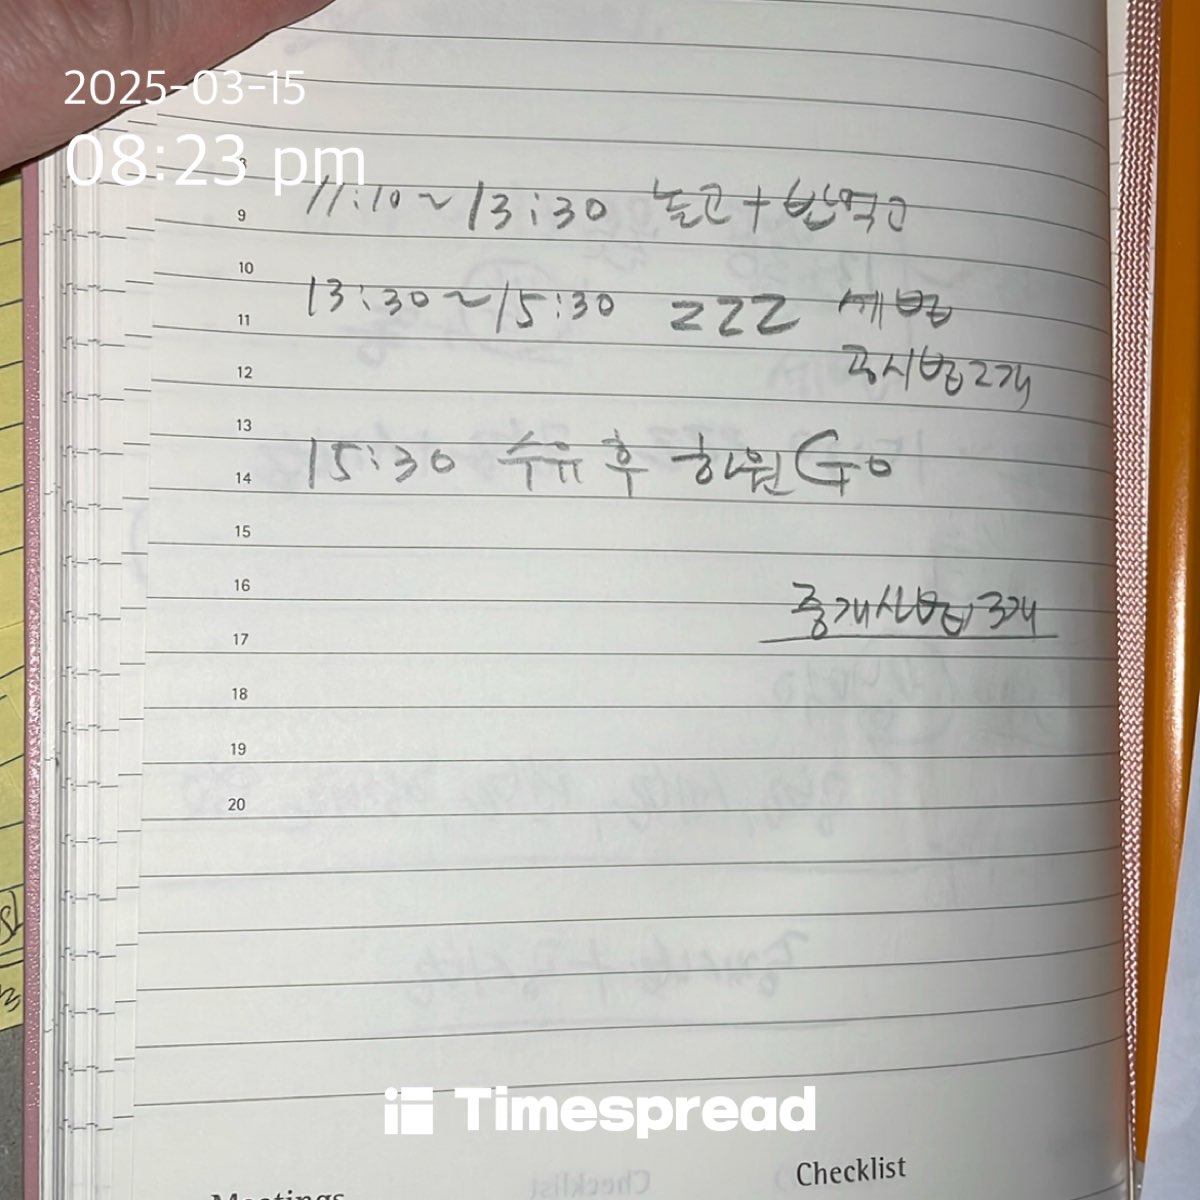 2025-03-15
08:23 pm
8
9
11:10~13:30 놀고+밥먹고
10
11
13:30~15:30 ZZZ 세법
12
공시법 2개
13
14
15:30 수유 후 학원 Go
15
16
중개실법 3개
17
18
19
20
Timespread
Checklist
Meetings